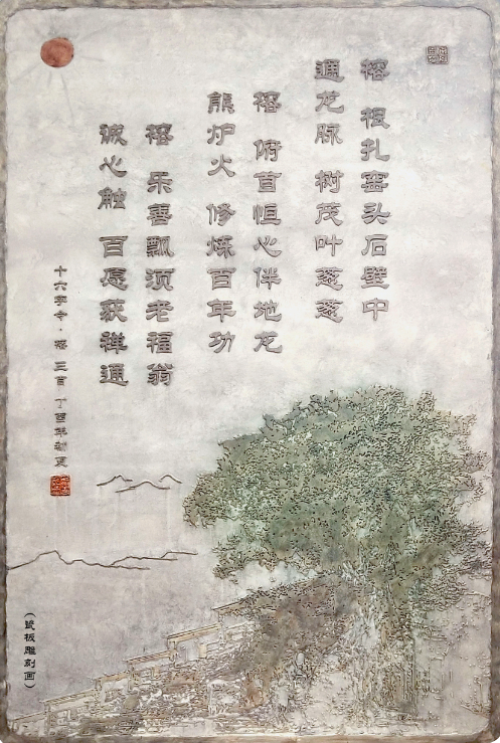 榕 根扎窑头石壁中
通龙脉 树茂叶葱葱
榕 俯首恒心伴地龙
熊炉火 修炼百年功
榕 乐善飘须老福翁
诚心触 百愿获禅通
十六字令·榕 三首 丁酉年初夏
（瓷板雕刻画）